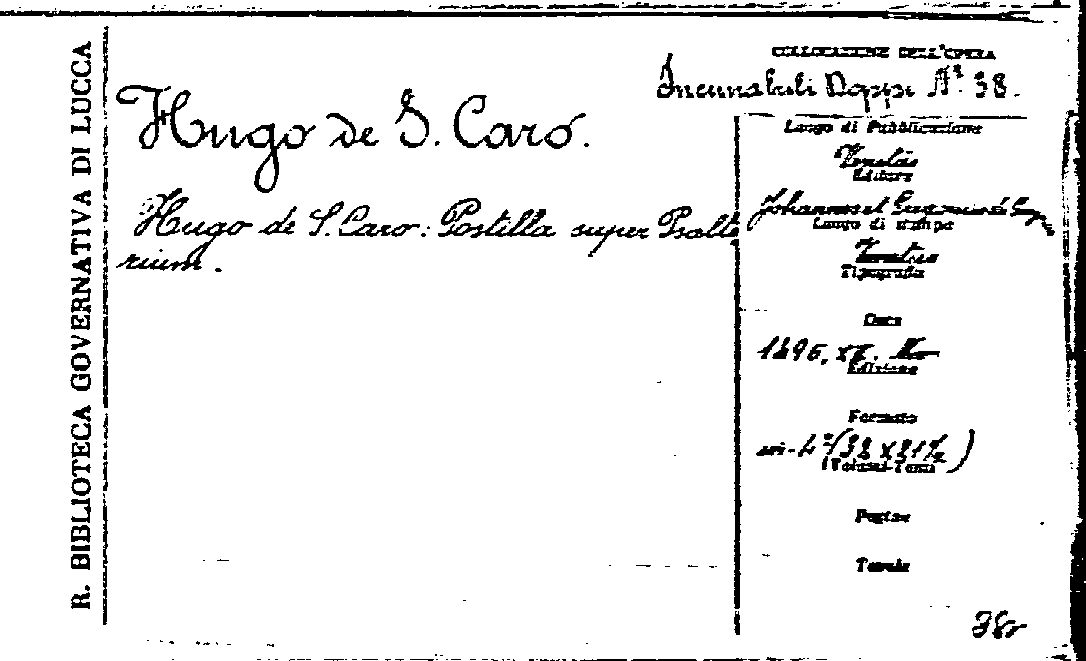 R. BIBLIOTECA GOVERNATIVA DI LUCCA
COLLOCAZIONE DELL'OPERA
Incunabuli Doppi N.º 38.
Hugo de S. Caro.
Hugo de S. Caro: Postilla super Psalte
rium.
Luogo di Pubblicazione
Venetiis
Editore
Johannes et Gregorius de
Luogo di stampa
Venetiis
Tipografia
Data
1496, XI.
Edizione
Formato
in-4º (32 X 21½)
(Volumi-Tomi)
Pagine
Tavole
38